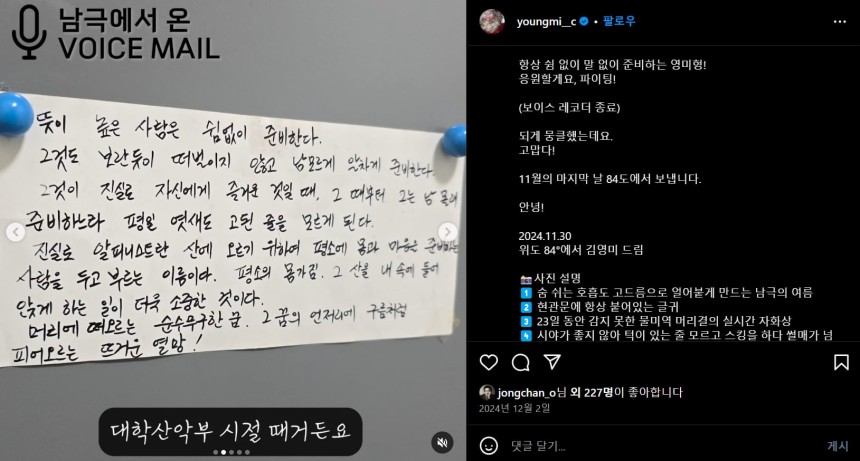 남극에서 온
VOICE MAIL
뜻이 높은 사람은 쉼없이 준비한다.
그것도 보란듯이 떠벌이지 않고 남모르게 알차게 준비한다
그것이 진실로 자신에게 즐거운 것일 때, 그 때부터 그는 남 몰래
준비하느라 평일 엿새도 고된 줄을 모르게 된다.
진실로 알피니스트란 산에 오르기 위하여 평소에 몸과 마음을 준비하는
사람을 두고 부르는 이름이다. 평소의 몸가짐. 그 산을 내 속에 들어
앉게 하는 일이 더욱 소중한 것이다.
머리에 떠오르는 순수무구한 꿈. 그 꿈의 언저리에 구름처럼
피어오르는 뜨거운 열망!
대학산악부 시절 때거든요
youngmi__c • 팔로우
항상 쉼 없이 말 없이 준비하는 영미형!
응원할게요, 파이팅!
(보이스 레코더 종료)
되게 뭉클했는데요.
고맙다!
11월의 마지막 날 84도에서 보냅니다.
안녕!
2024.11.30
위도 84°에서 김영미 드림
📸사진 설명
1️⃣ 숨 쉬는 호흡도 고드름으로 얼어붙게 만드는 남극의 여름
2️⃣ 현관문에 항상 붙어있는 글귀
3️⃣ 23일 동안 감지 못한 물미역 머리결의 실시간 자화상
4️⃣ 시야가 좋지 않아 턱이 있는 줄 모르고 스킹을 하다 썰매가 넘
jongchan_o님 외 227명이 좋아합니다
2024년 12월 2일
댓글 달기...
게시